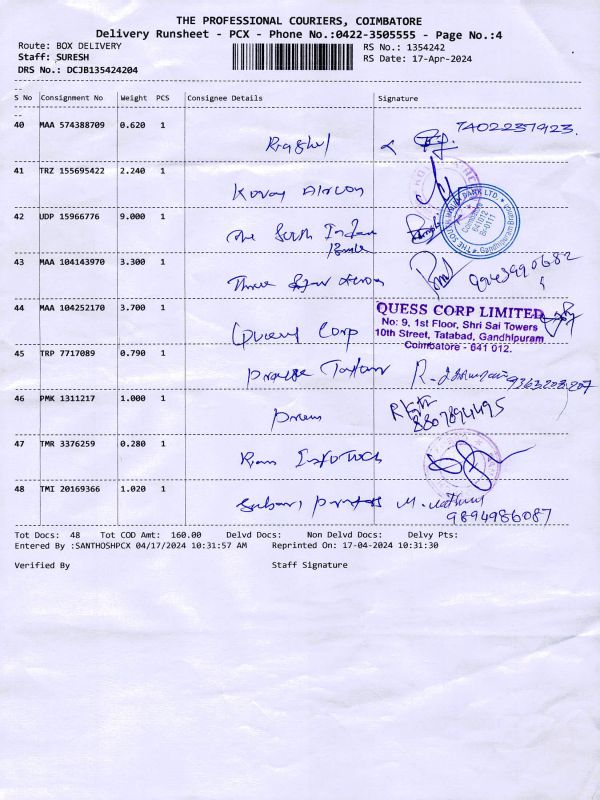 THE PROFESSIONAL COURIERS, COIMBATORE
Delivery Runsheet - PCX - Phone No.:0422-3505555 - Page No.:4
Route: BOX DELIVERY
RS No.: 1354242
Staff: SURESH
RS Date: 17-Apr-2024
DRS No.: DCJB135424204
S No Consignment No Weight PCS Consignee Details Signature
40 MAA 574388709 0.620 1
7402237923.
41 TRZ 155695422 2.240 1
Kovay Aircon
42 UDP 15966776 9.000 1
The South Indian
Bank
43 MAA 104143970 3.300 1
Three Star
44 MAA 104252170 3.700 1
Quess Corp
QUESS CORP LIMITED
No: 9, 1st Floor, Shri Sai Towers
10th Street, Tatabad, Gandhipuram
Coimbatore - 641 012.
45 TRP 7717089 0.790 1
9363203207
46 PMK 1311217 1.000 1
Prem
8807894495
47 TMR 3376259 0.280 1
Ram Infotech
48 TMI 20169366 1.020 1
9894986087
Tot Docs: 48 Tot COD Amt: 160.00 Delvd Docs: Non Delvd Docs: Delvy Pts:
Entered By :SANTHOSHPCX 04/17/2024 10:31:57 AM Reprinted On: 17-04-2024 10:31:30
Verified By Staff Signature